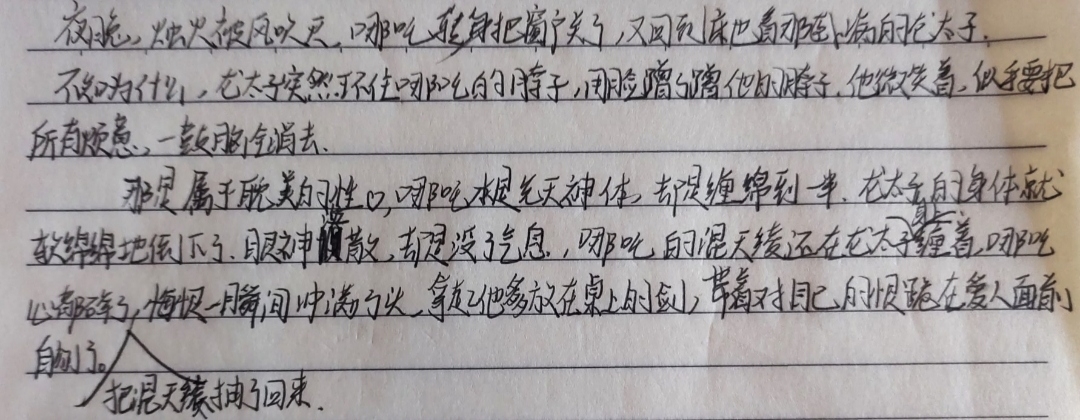 夜晚,烛火被风吹灭,哪吒转身把窗户关了,又回到床边看那卧病的龙太子.
不知为什么,龙太子突然环住哪吒的脖子,用脸蹭了蹭他的脖子.他微笑着,似乎要把
所有烦恼,一鼓脑全消去.
那是属于耽美的性,哪吒本是先天神体,却是缠绵到一半.龙太子的身体就
软绵绵地倒下了.眼神涣散,却是没了气息,哪吒的混天绫还在龙太子身上缠着,哪吒
心都碎了,悔恨一瞬间冲满了头,拿起他多放在桌上的剑,带着对自己的恨跪在爱人面前
自刎了。
把混天绫抽了回来.